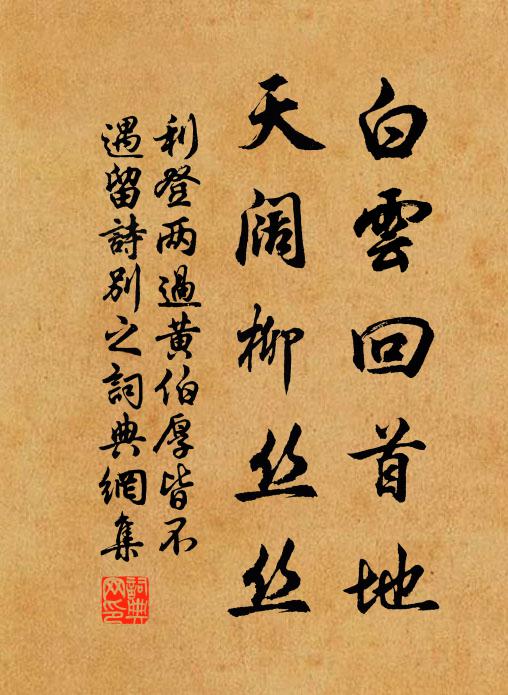 白雲回首地
天阔柳丝丝
利登两過黄伯厚皆不
遇留詩别之詞典網集
詞典網印